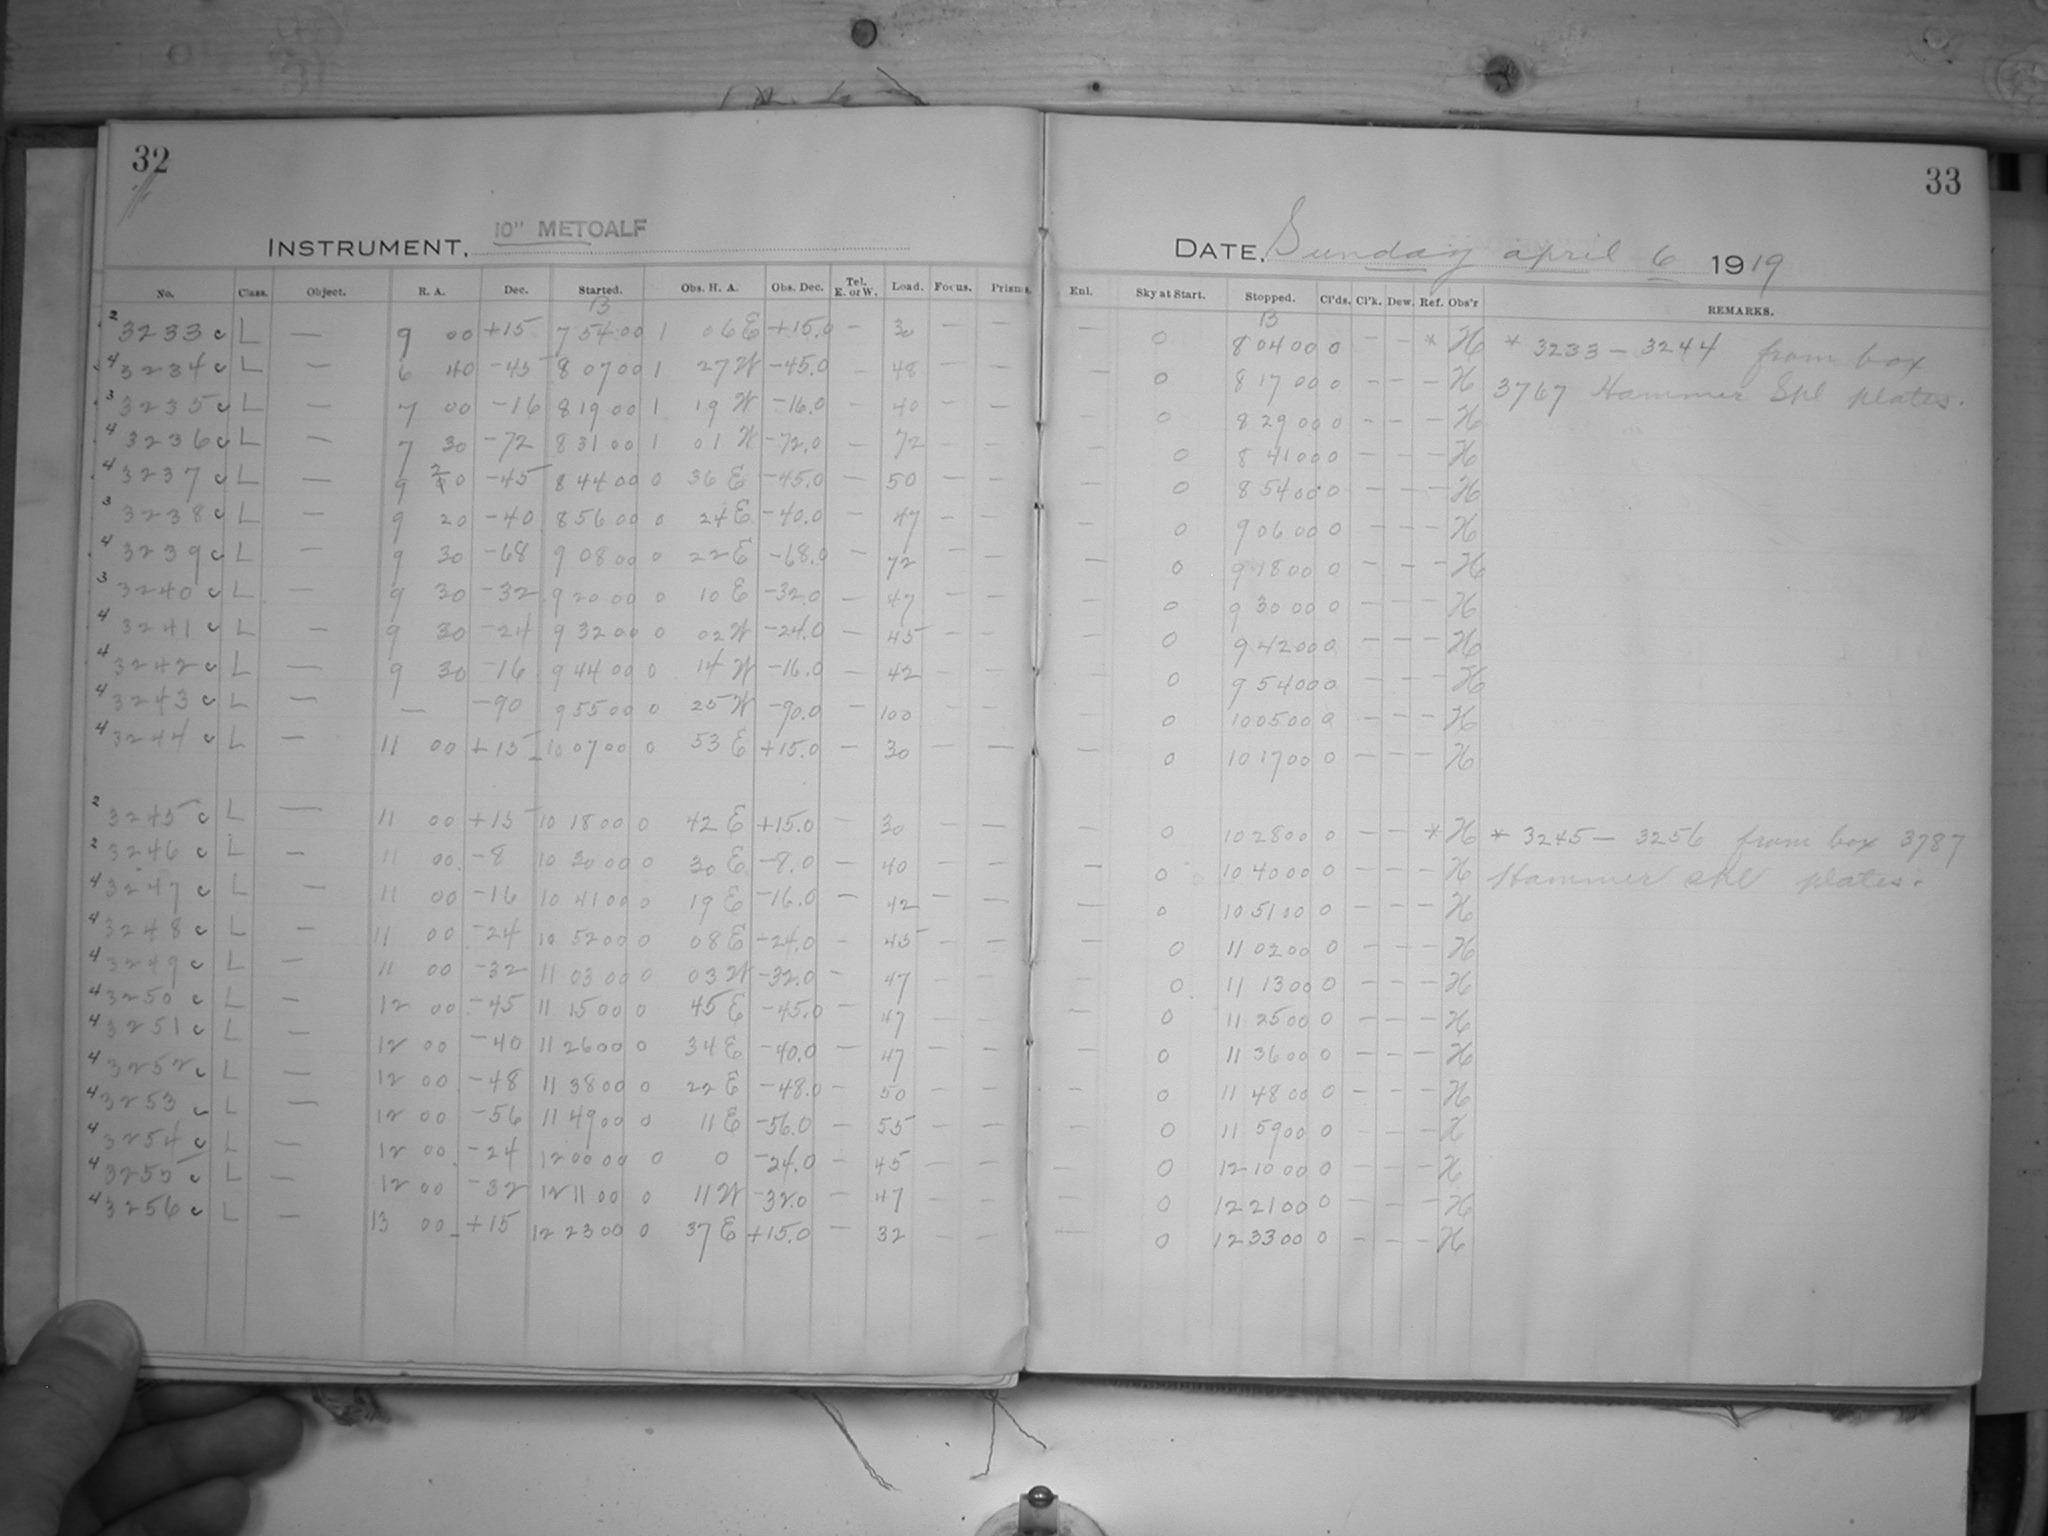 32
33
INSTRUMENT, 10" METCALF
DATE, Sunday april 6 1919
No. Class. Object. R. A. Dec. Started. Obs. H. A. Obs. Dec. Tel. E. or W. Load. Focus. Prisms. Enl. Sky at Start. Stopped. Cl'ds. Cl'k. Dew. Ref. Obs'r REMARKS.
13 13
2 3233 c L — 9 00 +15 7 54 00 1 06 E +15.0 — 30 — — — 0 8 04 00 0 — — * H * 3233 — 3244 from box
4 3234 c L — 6 40 -45 8 07 00 1 27 W -45.0 — 48 — — — 0 8 17 00 0 — — — H 3767 Hammer Spl plates.
3 3235 c L — 7 00 -16 8 19 00 1 19 W -16.0 — 40 — — — 0 8 29 00 0 — — — H
4 3236 c L — 7 30 -72 8 31 00 1 01 W -72.0 — 72 — — — 0 8 41 00 0 — — — H
4 3237 c L — 9 20 -45 8 44 00 0 36 E -45.0 — 50 — — — 0 8 54 00 0 — — — H
3 3238 c L — 9 20 -40 8 56 00 0 24 E -40.0 — 47 — — — 0 9 06 00 0 — — — H
4 3239 c L — 9 30 -68 9 08 00 0 22 E -68.0 — 72 — — — 0 9 18 00 0 — — — H
3 3240 c L — 9 30 -32 9 20 00 0 10 E -32.0 — 47 — — — 0 9 30 00 0 — — — H
4 3241 c L — 9 30 -24 9 32 00 0 02 W -24.0 — 45 — — — 0 9 42 00 0 — — — H
4 3242 c L — 9 30 -16 9 44 00 0 14 W -16.0 — 42 — — — 0 9 54 00 0 — — — H
4 3243 c L — — -90 9 55 00 0 25 W -90.0 — 100 — — — 0 10 05 00 0 — — — H
4 3244 c L — 11 00 +15 10 07 00 0 53 E +15.0 — 30 — — — 0 10 17 00 0 — — — H
2 3245 c L — 11 00 +15 10 18 00 0 42 E +15.0 — 30 — — — 0 10 28 00 0 — — * H * 3245 — 3256 from box 3787
2 3246 c L — 11 00 -8 10 30 00 0 30 E -8.0 — 40 — — — 0 10 40 00 0 — — — H Hammer spl plates.
4 3247 c L — 11 00 -16 10 41 00 0 19 E -16.0 — 42 — — — 0 10 51 00 0 — — — H
4 3248 c L — 11 00 -24 10 52 00 0 08 E -24.0 — 45 — — — 0 11 02 00 0 — — — H
4 3249 c L — 11 00 -32 11 03 00 0 03 W -32.0 — 47 — — — 0 11 13 00 0 — — — H
4 3250 c L — 12 00 -45 11 15 00 0 45 E -45.0 — 47 — — — 0 11 25 00 0 — — — H
4 3251 c L — 12 00 -40 11 26 00 0 34 E -40.0 — 47 — — — 0 11 36 00 0 — — — H
4 3252 c L — 12 00 -48 11 38 00 0 22 E -48.0 — 50 — — — 0 11 48 00 0 — — — H
4 3253 c L — 12 00 -56 11 49 00 0 11 E -56.0 — 55 — — — 0 11 59 00 0 — — — H
4 3254 c L — 12 00 -24 12 00 00 0 0 -24.0 — 45 — — — 0 12 10 00 0 — — — H
4 3255 c L — 12 00 -32 12 11 00 0 11 W -32.0 — 47 — — — 0 12 21 00 0 — — — H
4 3256 c L — 13 00 +15 12 23 00 0 37 E +15.0 — 32 — — — 0 12 33 00 0 — — — H